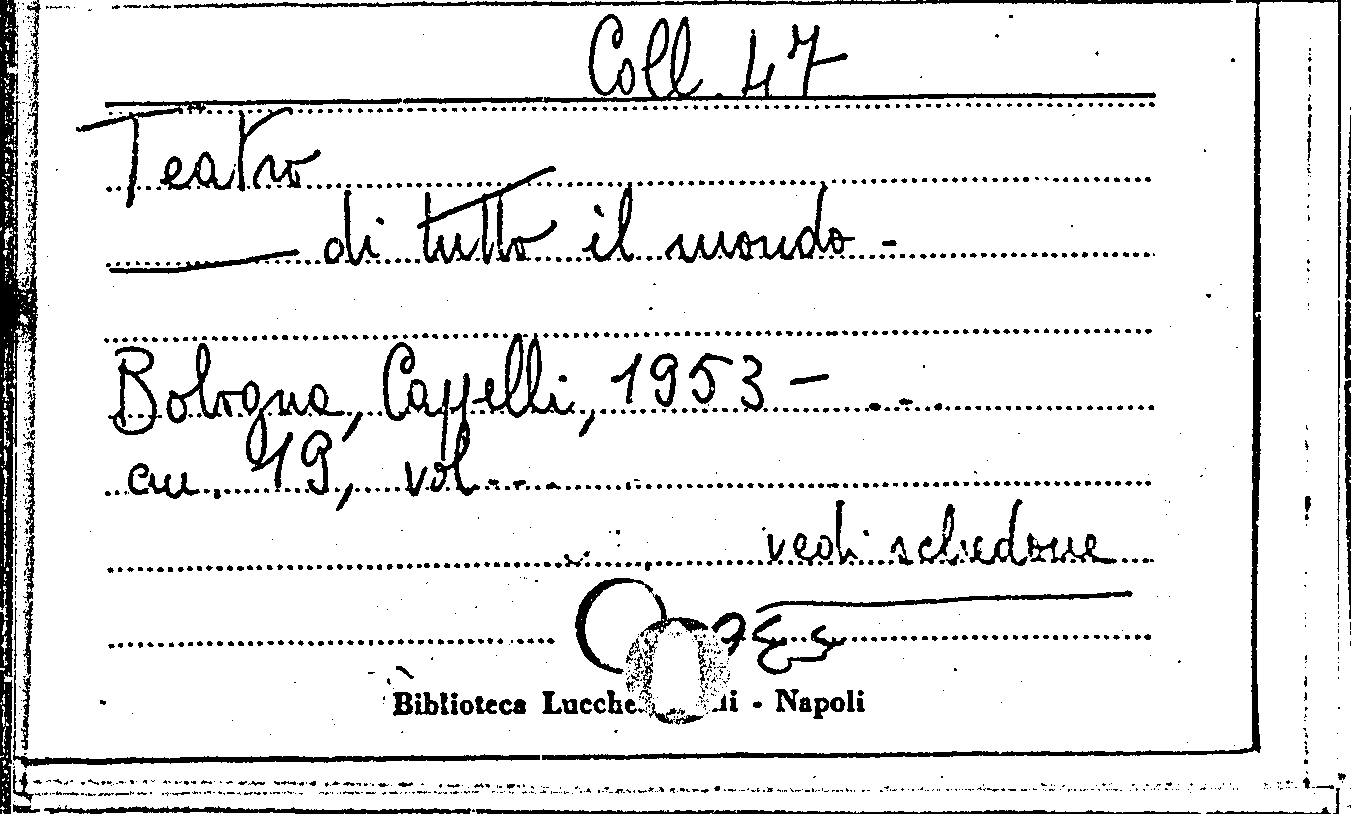 Coll. 47
Teatro
di tutto il mondo -
Bologna, Cappelli, 1953 - ...
cm. 19, vol...
vedi schedone
Biblioteca - Napoli